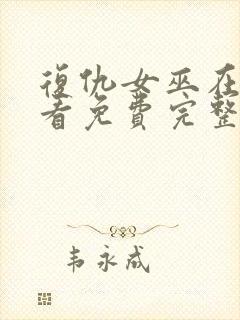 復仇女巫在
看免費完整
韦永成